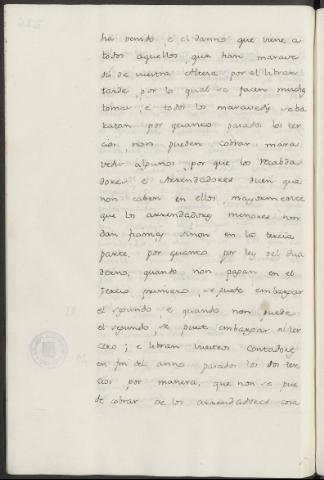 ha venido, e el danno que viene a
todos aquellos que han marave
dis de vuestra Altesa por el librar
tarde, por lo qual se facen muchas
tomas, e todos los maravedis se ba
ratan por quanto pasados los ter
cios, non pueden cobrar mara
vedis algunos, por que los Recabda
dores, e Arrendadores disen que
non caben en ellos, mayormente
que los arrendadores menores non
dan fianzas sinon en la tercia
parte, por quanto por ley del qua
derno, quando non pagan en el
tercio primero, se puede embargar
el segundo e quando non puede
el segundo se puede embargar el ter
cero; e libran vuestros Contadores
en fin del anno pasados los dos ter
cios por manera, que non se pue
de cobrar de los arrendadores cosa